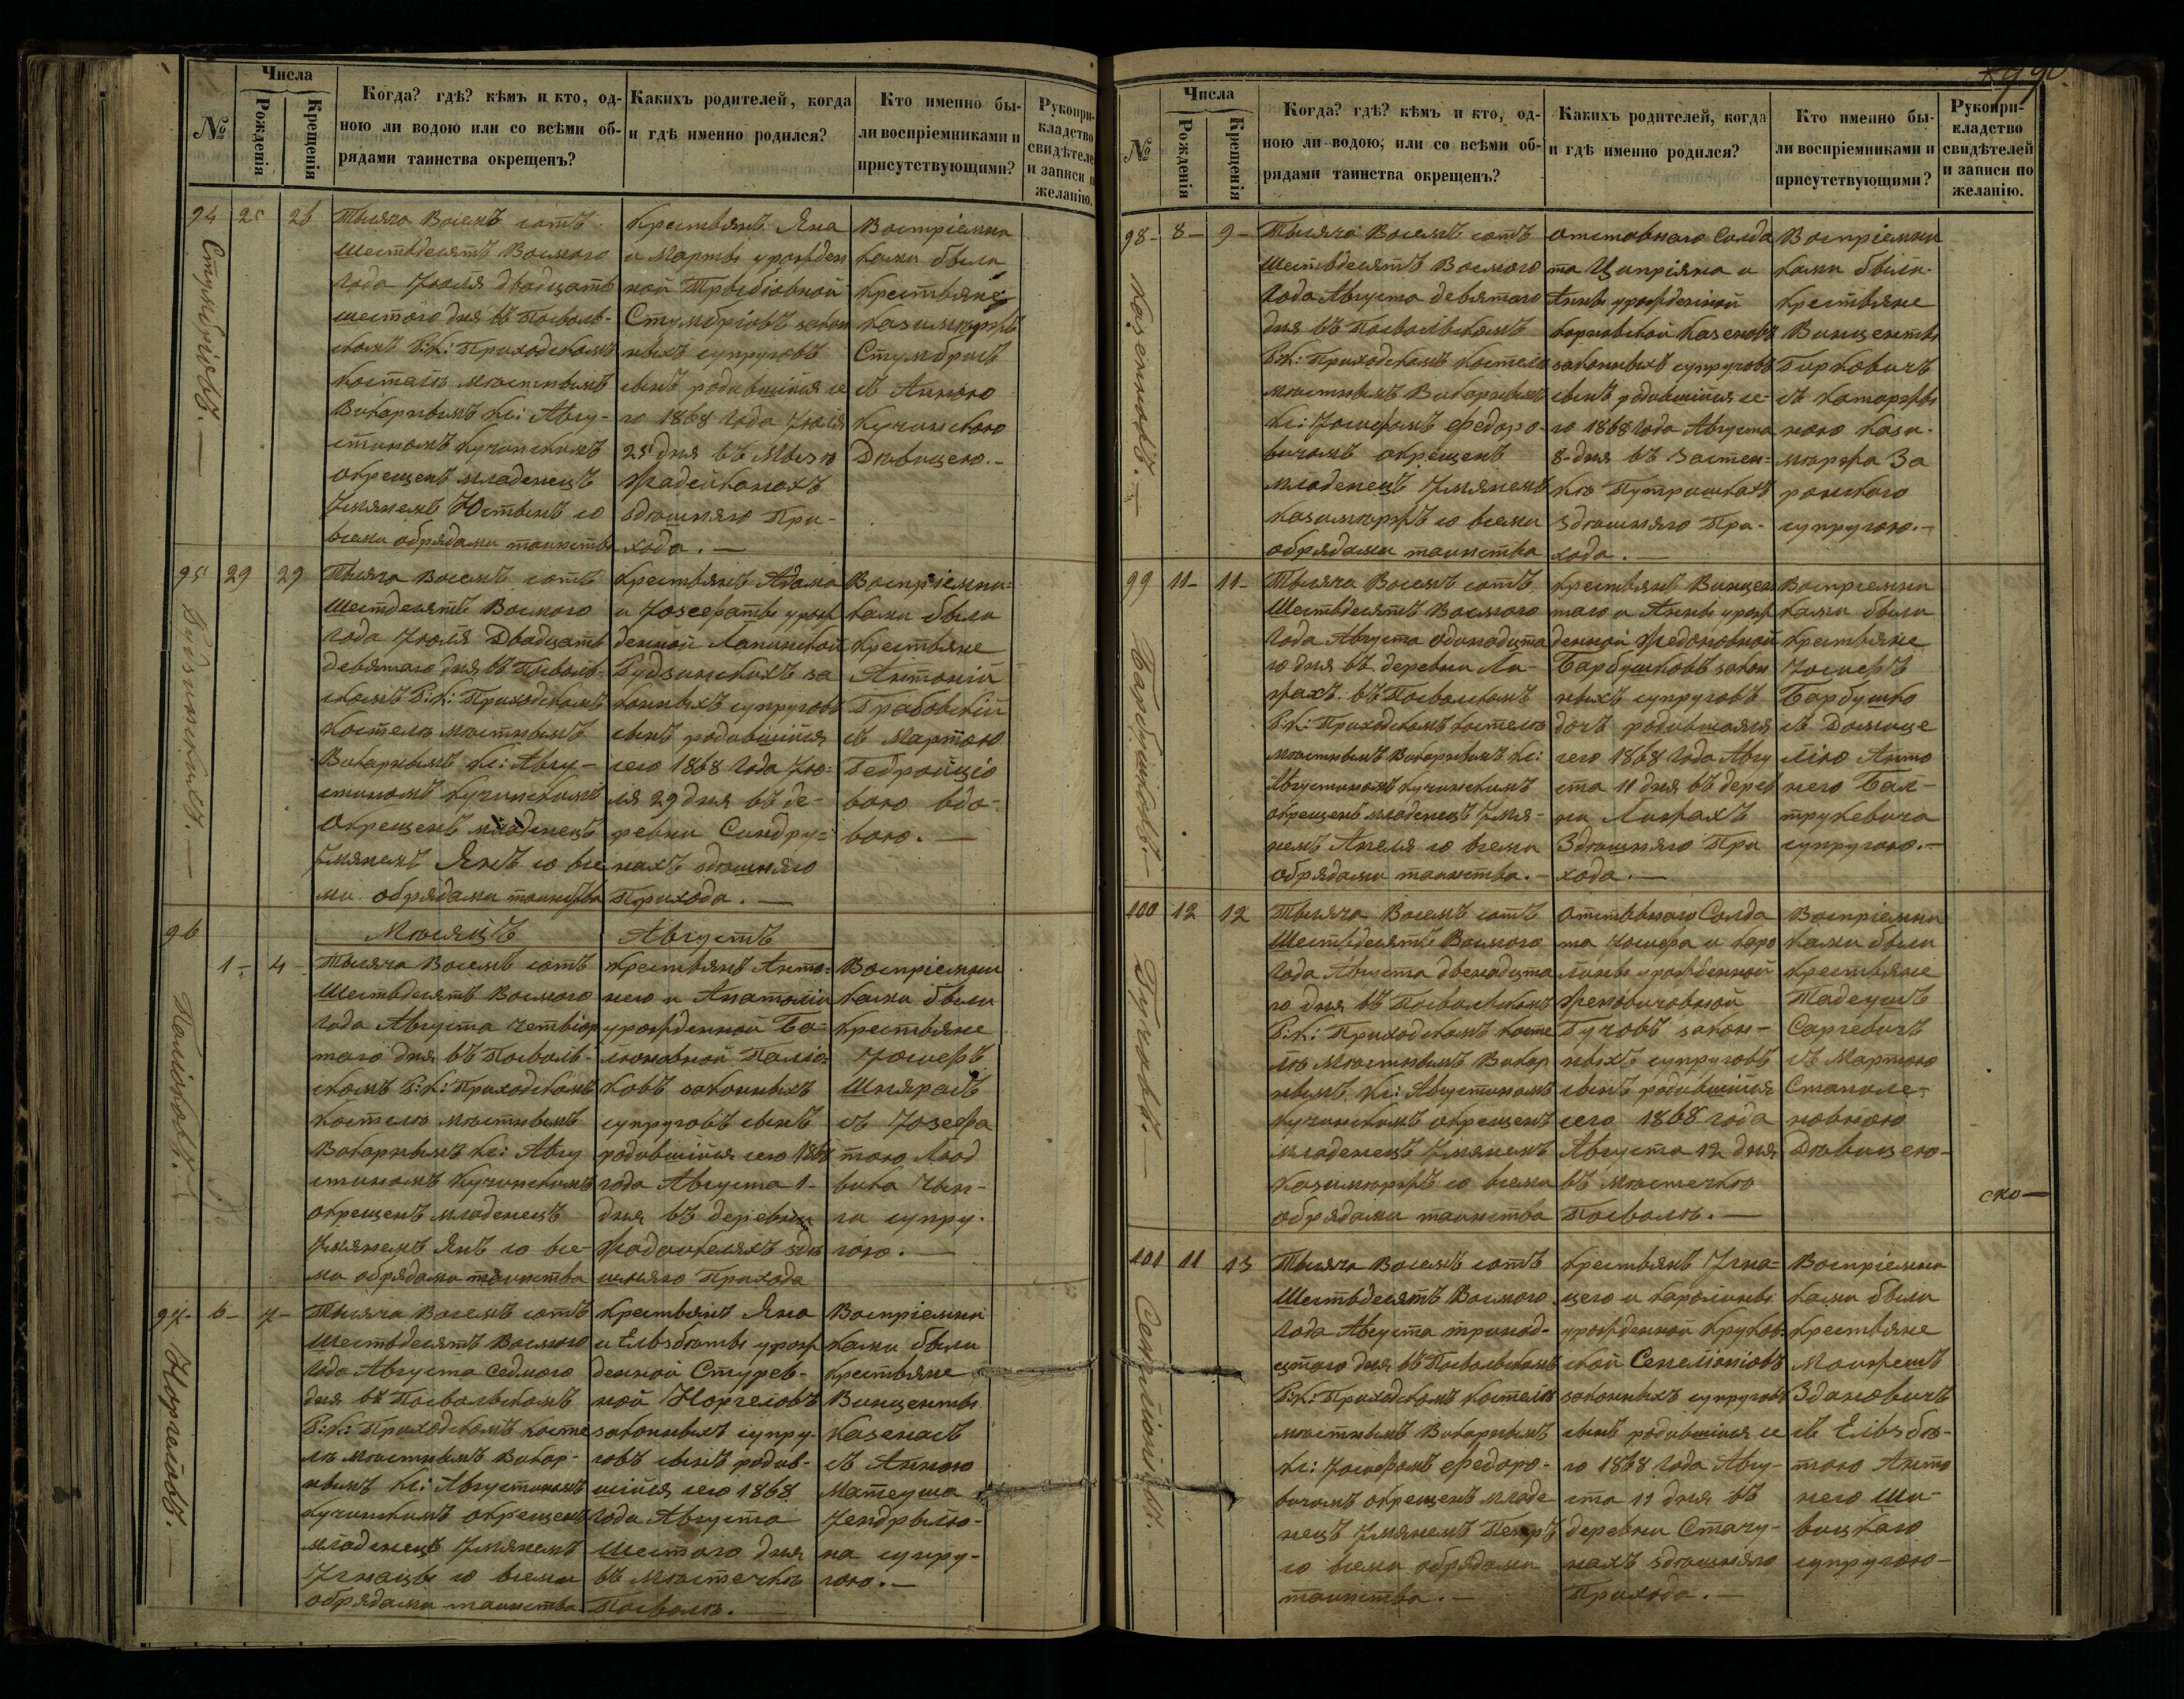 №
Числа
Рожденія
Крещенія
Когда? гдѣ? кѣмъ и кто, од-
ною ли водою или со всѣми об-
рядами таинства окрещенъ?
Какихъ родителей, когда
и гдѣ именно родился?
Кто именно бы-
ли воспріемниками и
присутствующими?
Рукопри-
кладство
свидѣтеле
и записи п
желанію.
94 25 26
Стумбрисовъ.
Тысяча Восемь сотъ
Шестьдесятъ Восмого
Года Іюля двадцать
шестого дня въ Посволь-
скомъ Р: К: Приходскомъ
Костелѣ мѣстнымъ
Викарнымъ Кс: Авгу-
стиномъ Кучинскимъ
окрещенъ младенецъ
Имянемъ Юстынъ со
всеми обрядами таинства
Крестьянъ Яна
и Марты урожден
ной
законныхъ супруговъ
сынъ родившійся се
го 1868 Года Іюля
25 дня въ Мызѣ
здѣшняго При-
хода. —
Воспріемни
ками были
Крестьяне
Казимиръ
Стумбрисъ
съ Анною
Кучинскою
Дѣвицею. -
95 29 29
Будзинскихъ. —
Тысяча Восемь сотъ
Шестдесятъ Восмого
Года Іюля Двадцать
девятаго дня въ Посволь-
скомъ Р: К: Приходскомъ
Костелѣ мѣстнымъ
Викарнымъ Кс: Авгу-
стиномъ Кучинскимъ
Окрещенъ младенецъ
Имянемъ Янъ со все
ми обрядами таинства
Крестьянъ Адама
и Іозефаты урож
денной Лапинской
Будзинскихъ за
конныхъ супруговъ
сынъ родившійся
сего 1868 Года Ію-
ля 29 дня въ де-
ревни Синдру-
нахъ здѣшняго
Прихода. —
Воспріемни-
ками были
Крестьяне
Антоній
Грабовскій
съ Мартою
Гедройціо
вою вдо-
вою. —
96
Мѣсяцъ Августъ
1- 4-
Тысяча Восемь сотъ
Шестьдесятъ Восмого
Года Августа четвіор
таго дня въ Посволь-
скомъ Р: К: Приходскомъ
Костелѣ мѣстнымъ
Викарнымъ Кс: Авгу
стиномъ Кучинскимъ
окрещенъ младенецъ
Имянемъ Янъ со все-
ми обрядами таинства
Крестьянъ Анто-
него и Анатоліи
урожденной
законныхъ
супруговъ сынъ
родившійся сего 1868
года Августа 1-
дня въ деревни
здѣ
шняго Прихода
Воспріемни
ками были
Крестьяне
Іосифъ
съ Іозефа
тою Люд
вика
га супру-
гою. —
97- 6- 7-
Норгеловъ. —
Тысяча Восемь сотъ
Шестьдесятъ Восмого
Года Августа Седмого
дня въ Посвольскомъ
Р: К: Приходскомъ Косте
лѣ мѣстнымъ Викар-
нымъ Кс: Августиномъ
Кучинскимъ окрещенъ
младенецъ Имянемъ
Игнацы со всеми
обрядами таинства
Крестьянъ Яна
и Ельзбеты урож
денной Стурев-
ной Норгеловъ
законныхъ супру-
говъ сынъ родив-
шійся сего 1868
Года Августа
Шестого дня
въ Мѣстечкѣ
Посволѣ. —
Воспріемни
ками были
Крестьяне
Винценты
Казенасъ
съ Анною
Матеуша
Іендрылю-
на супру-
гою. —
№
Числа
Рожденія
Крещенія
Когда? гдѣ? кѣмъ и кто, од-
ною ли водою, или со всѣми об-
рядами таинства окрещенъ?
Какихъ родителей, когда
и гдѣ именно родился?
Кто именно бы-
ли воспріемниками и
присутствующими?
Рукопри-
кладство
свидѣтелей
и записи по
желанію.
98- 8- 9-
Казенновъ. —
Тысяча Восемь сотъ
Шестьдесятъ Восмого
Года Августа девятого
дня въ Посвольскомъ
Р: К: Приходскомъ Костелѣ
мѣстнымъ Викарнымъ
Кс: Іосифомъ Федоро-
вичомъ окрещенъ
младенецъ Имянемъ
Казимиръ со всеми
обрядами таинства
отставного Солда
та Ципріяна и
Анны урожденной
законныхъ супруговъ
сынъ родившійся се-
го 1868 Года Августа
8- дня въ Застен-
кѣ Путришкахъ
здѣшняго При-
хода. —
Воспріемни
ками были
Крестьяне
Винценты
съ Катаржы
ною Кази-
мирa За
ронского
супругою. —
99 11- 11-
Барбушковъ. —
Тысяча Восемь сотъ
Шестьдесятъ Восмого
Года Августа одинадцта
го дня въ деревни Ли-
жахъ въ Посвольскомъ
Р: К: Приходскомъ костелѣ
мѣстнымъ Викарнымъ Кс:
Августиномъ Кучинскимъ
окрещенъ младенецъ Имя-
немъ Анеля со всеми
обрядами таинства. —
Крестьянъ Винцен
таго и Анны урож
денной
Барбушковъ закон
ныхъ супруговъ
дочь родившаяся
сего 1868 Года Авгу
ста 11 дня въ дерев
ни Лижахъ
Здѣшняго При
хода. —
Воспріемни
ками были
Крестьяне
Іосифъ
Барбушко
съ Домице
лію Анто
него Бал-
трукевича
супругою. —
100 12 12
Бучовъ. —
Тысяча Восемь сотъ
Шестьдесятъ Восмого
Года Августа двенадцта
го дня въ Посвольскомъ
Р: К: Приходскомъ косте
лѣ Мѣстнымъ Викар
нымъ Кс: Августиномъ
Кучинскимъ окрещенъ
младенецъ Имянемъ
Казимиръ со всеми
обрядами таинства
Отставнаго Солда
та Іосифа и Каро
лины урожденной
Бучовъ закон-
ныхъ супруговъ
сынъ родившійся
сего 1868 года
Августа 12 дня
въ Мѣстечкѣ
Посволѣ. —
Воспріемни
ками были
Крестьяне
Тадеушъ
Саргевичъ
съ Мартою
Дѣвицею-
101 11 13
Тысяча Восемь сотъ
Шестьдесятъ Восмого
Года Августа тринад-
цтого дня въ Посвольскомъ
Р: К: Приходскомъ Костелѣ
мѣстнымъ Викарнымъ
Кс: Іосифомъ Федоро-
вичомъ окрещенъ младе
нецъ Имянемъ Петръ
со всеми обрядами
таинства. —
Крестьянъ Игна-
цего и Каролины
урожденной Круков-
ской
законныхъ супруговъ
сынъ родившійся се
го 1868 Года Авгу-
ста 11 дня въ
деревни Стачу-
нахъ здѣшняго
Прихода. —
Воспріемни
ками были
Крестьяне
Здановичъ
съ Ельзбѣ-
тою Анто
него Ши-
вицкаго
супругою —